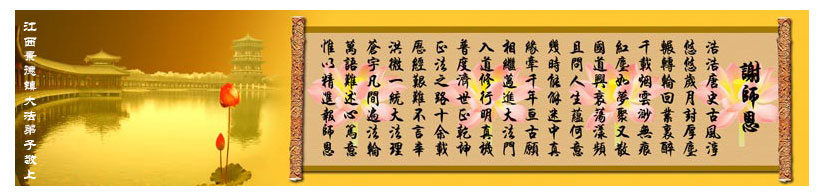 謝師恩
浩浩唐史古風淳
悠悠歲月封厚塵
輾轉輪回業裏醉
千載烟雲渺無痕
紅塵如夢聚又散
國道興衰蕩漾頻
且問人生蘊何意
幾時能解迷中真
緣牽千年亘古願
相繼邁進大法門
入道修行明真機
普度濟世正乾坤
正法之路十余載
歷經艱難不言辛
洪微一統大法理
蒼宇凡間遍法輪
萬語難述心篤意
惟以精進報師恩
江西景德鎮大法弟子敬上